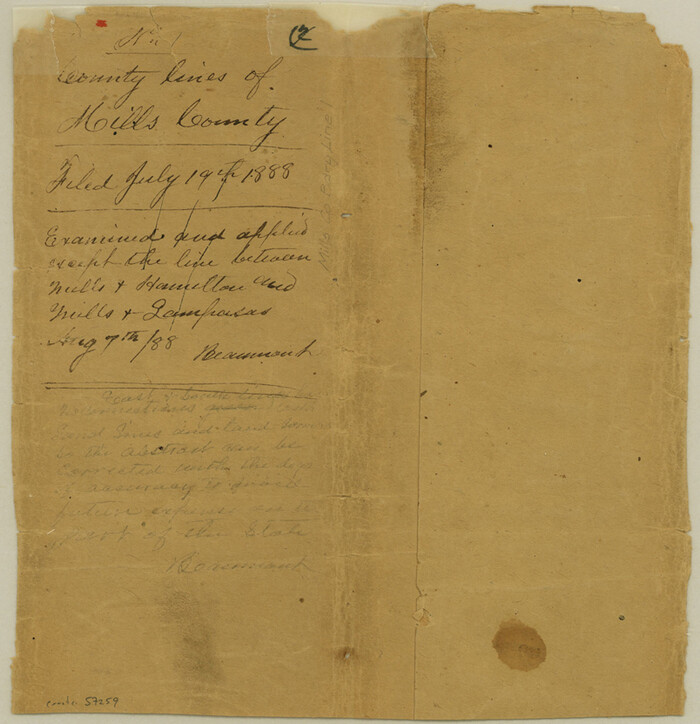 No 1
12
County lines of
Mills County
Filed July 19th 1888
Examined and applied
except the line between
Mills & Hamilton and
Mills & Lampasas
Aug 7th /88
Beaumont
East & South lines
land lines and land
in the abstract can be
corrected with the
necessary to avoid
future expense on
part of the State
Beaumont
Mills Co. Bdry Line 1
counter 57259